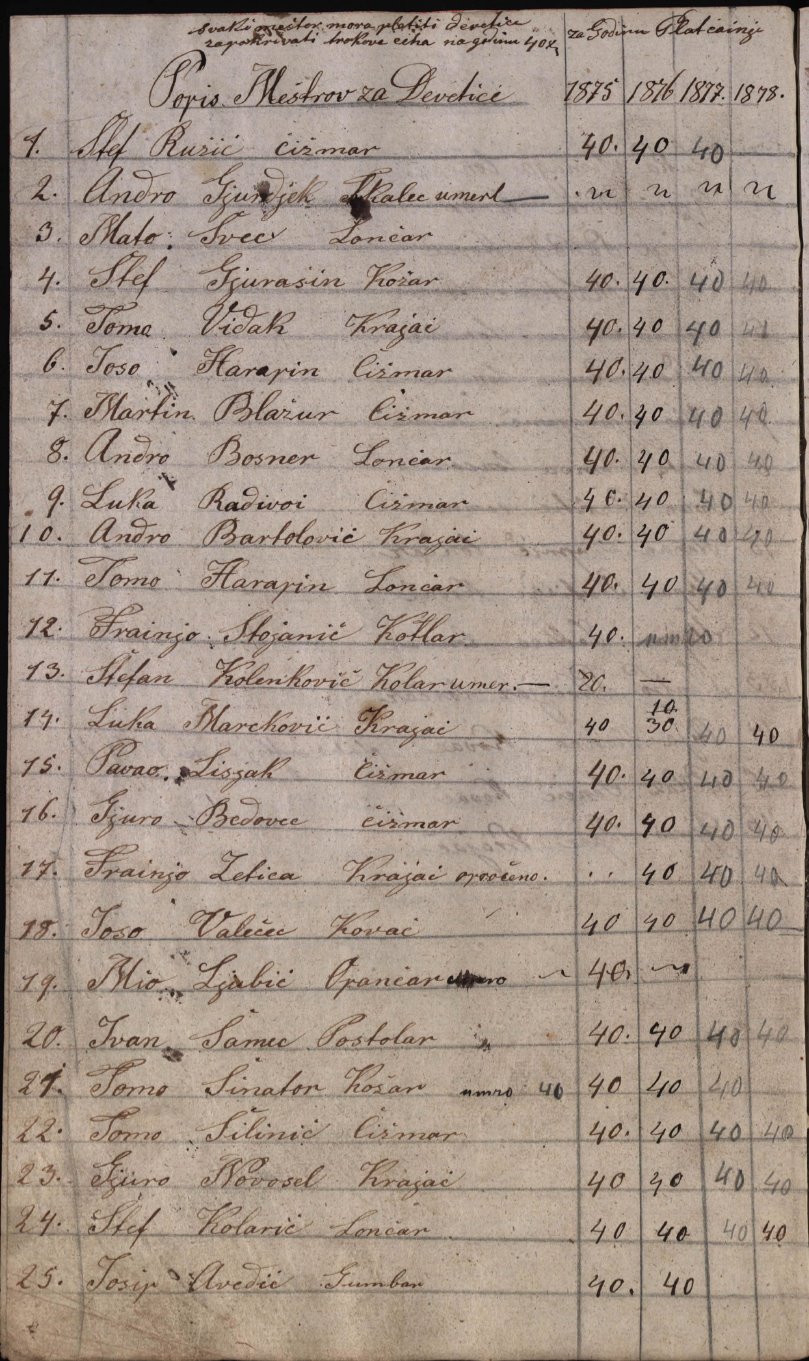 svaki meštor mora platiti devetice
zapokrivati trokove ceha na godinu 40x
za Godinu Platćainje
Popis Meštrov za Devetice 1875 1876 1877. 1878.
1. Stef Ružić čižmar 40. 40 40
2. Andro Gjurdjek Tkalec umerl — . n n n n
3. Mato Svec Lončar
4. Stef Gjurasin Kožar 40. 40. 40 40
5. Tomo Vidak Krajač 40. 40 40 40
6. Joso Harapin Čižmar 40. 40 40 40
7. Martin Blažur Čižmar 40. 40 40 40
8. Andro Bosner Lončar 40. 40 40 40
9. Luka Radivoi Čižmar 40. 40 40 40
10. Andro Bartolović Krajač 40. 40 40 40
11. Tomo Harapin Lončar 40. 40 40 40
12. Frainjo Stojanić Kotlar 40. umro
13. Štefan Kolenković Kolar umer. — 20. —
14. Luka Marcković Krajač 40 10. 30. 40 40
15. Pavao Lisjak Čižmar 40. 40 40 40
16. Gjuro Bedovec čižmar 40. 40 40 40
17. Frainjo Zetica Krajač oprošćeno. . . 40 40 40
18. Joso Valečec Kovač 40 40 40 40
19. Mio Ljubić Opančar umro ~ 40. ~
20. Ivan Samec Postolar 40. 40 40 40
21. Tomo Sinator Kožar umro 40 40 40 40
22. Tomo Šilinić Čižmar 40. 40 40 40
23. Gjuro Novosel Krajač 40 40 40 40
24. Stef Kolarić Lončar 40 40 40 40
25. Josip Avedić Gumbar 40. 40